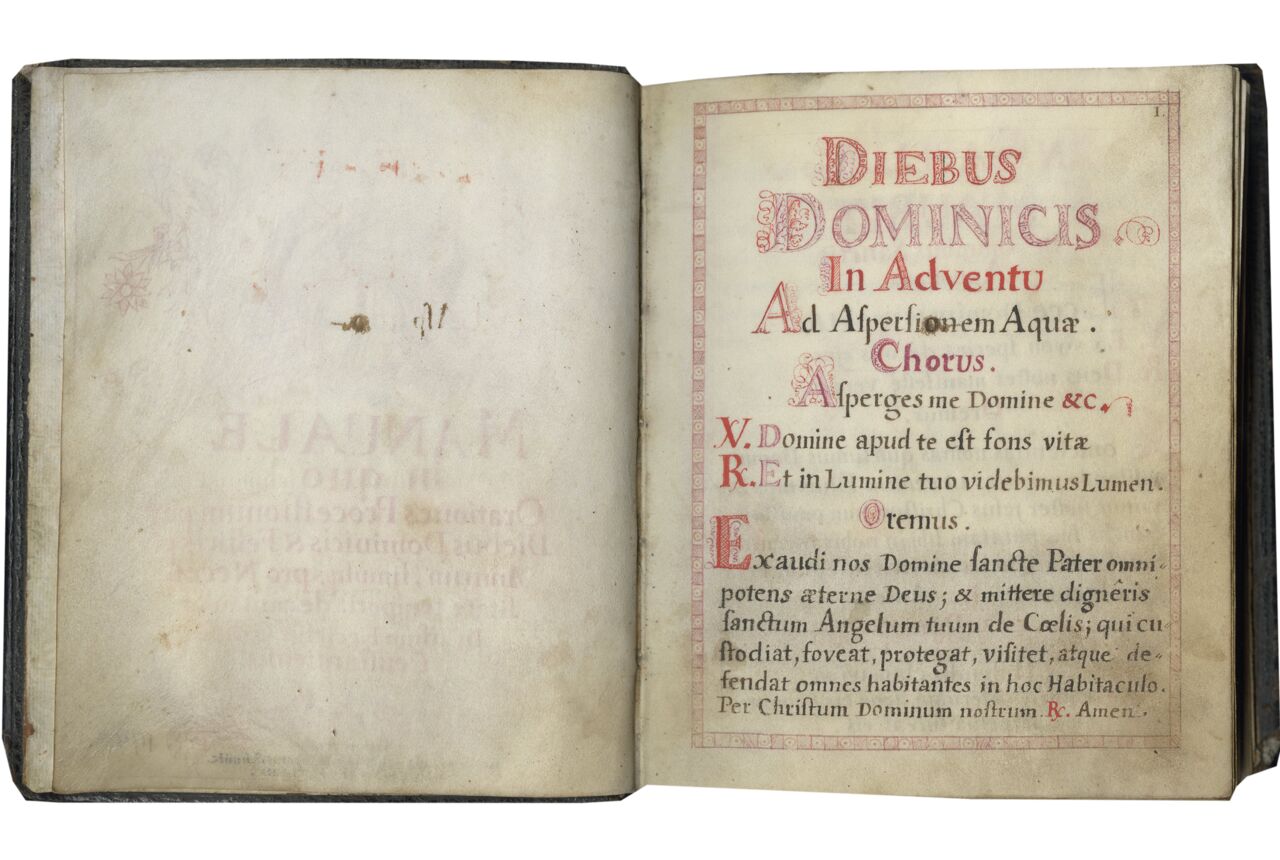 1.
DIEBUS
DOMINICIS
In Adventu
Ad Aſperſionem Aquæ.
Chorus.
Aſperges me Domine &c.
V. Domine apud te eſt fons vitæ
R. Et in Lumine tuo videbimus Lumen.
Oremus.
Exaudi nos Domine ſancte Pater omni-
potens æterne Deus; & mittere dignêris
ſanctum Angelum tuum de Cœlis; qui cu
ſtodiat, foveat, protegat, viſitet, atque de-
fendat omnes habitantes in hoc Habitaculo.
Per Chriſtum Dominum noſtrum. R. Amen.
MANUALE
in quo
Orationes Proceſſionum
Diebus Dominicis & Feſtis